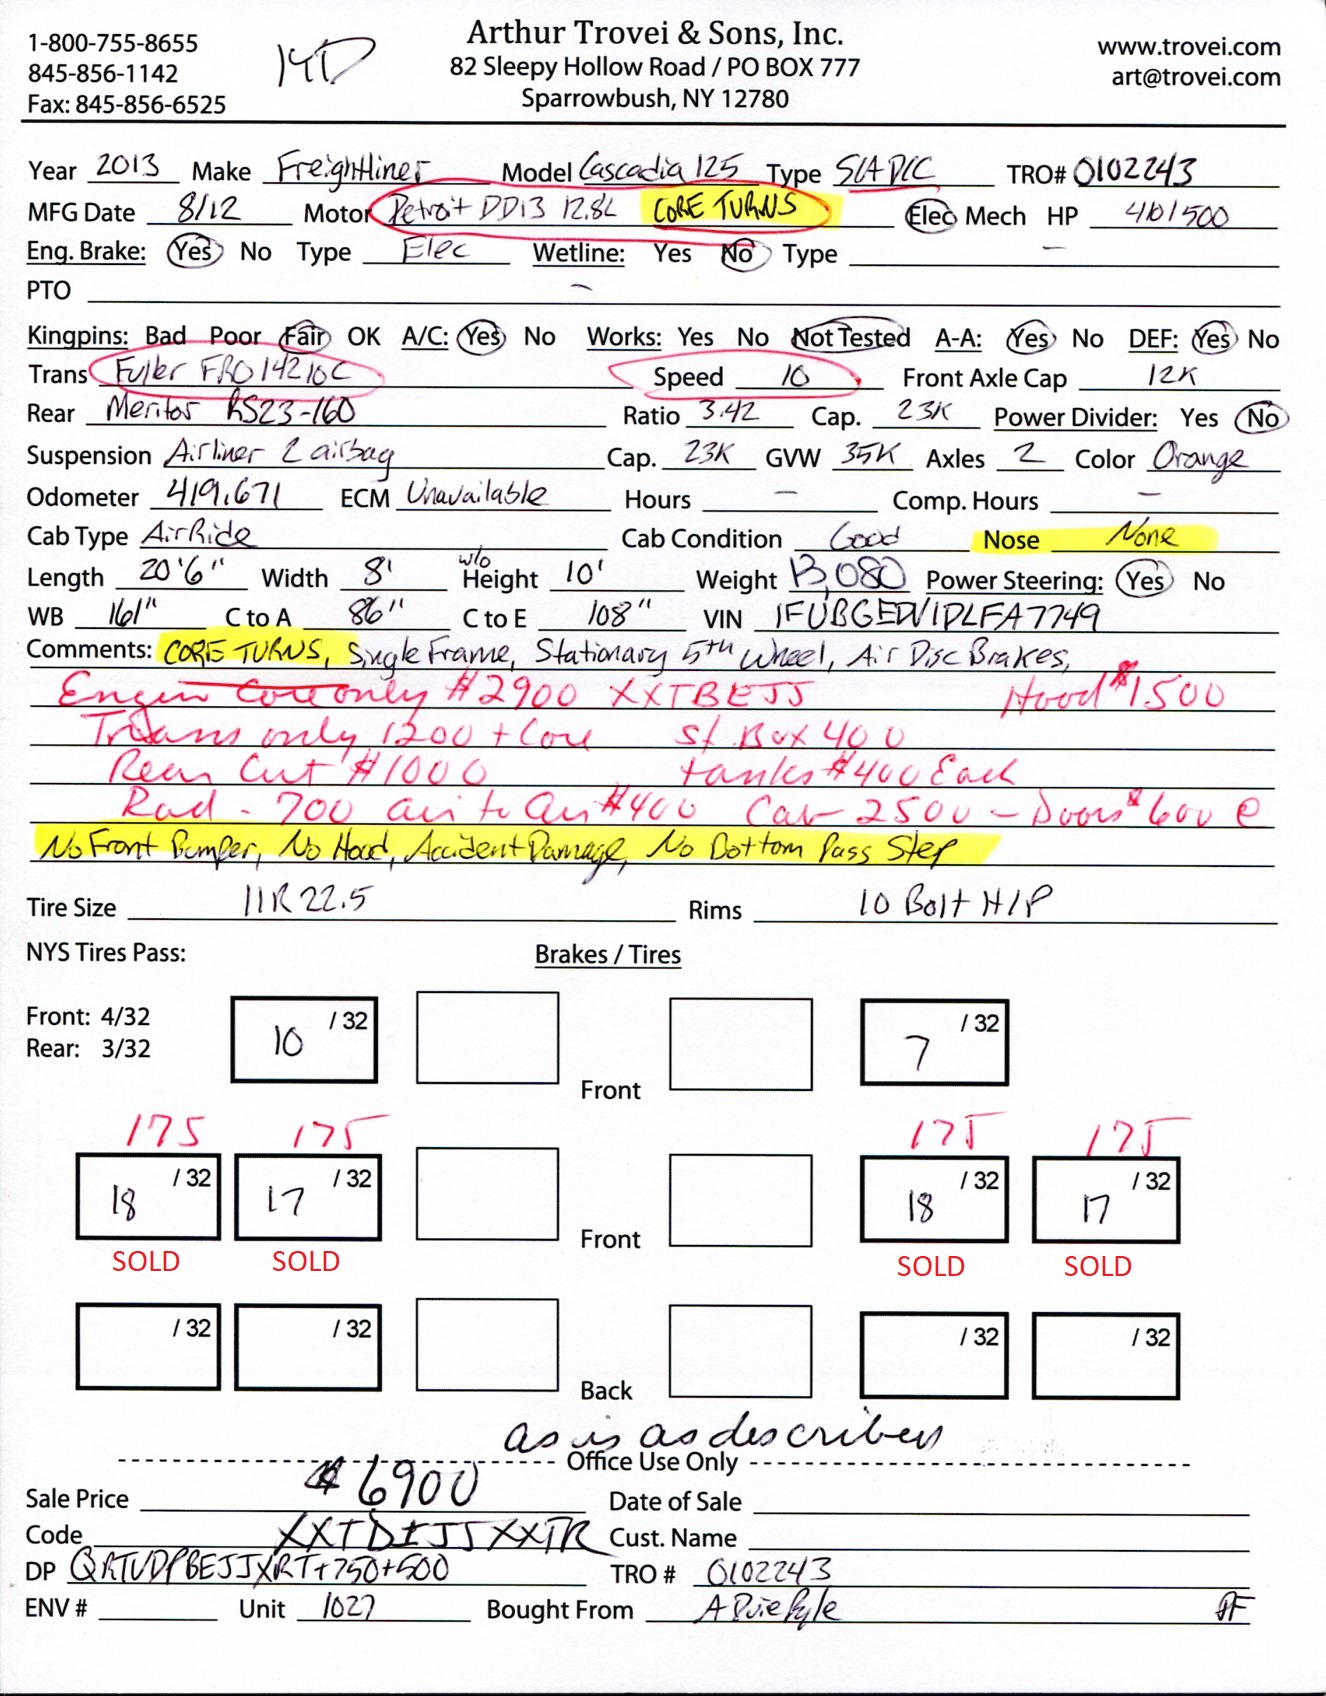 1-800-755-8655
845-856-1142
Fax: 845-856-6525
Arthur Trovei & Sons, Inc.
82 Sleepy Hollow Road / PO BOX 777
Sparrowbush, NY 12780
www.trovei.com
art@trovei.com
Year 2013 Make Freightliner Model Cascadia 125 Type S/A D/C TRO# 0102243
MFG Date 8/12 Motor Detroit DD13 12.8L CORE TURNS Elec Mech HP 410/500
Eng. Brake: Yes No Type Elec Wetline: Yes No Type –
PTO –
Kingpins: Bad Poor Fair OK A/C: Yes No Works: Yes No Not Tested A-A: Yes No DEF: Yes No
Trans Fuller FRO14210C Speed 10 Front Axle Cap 12K
Rear Meritor RS23-160 Ratio 3.42 Cap. 23K Power Divider: Yes No
Suspension Airliner 2 airbag Cap. 23K GVW 35K Axles 2 Color Orange
Odometer 419,671 ECM Unavailable Hours – Comp. Hours –
Cab Type AirRide Cab Condition Good Nose None
Length 20'6" Width 8' w/o Height 10' Weight 13,080 Power Steering: Yes No
WB 161" C to A 86" C to E 108" VIN 1FUBGEDV1DLFA7749
Comments: CORE TURNS, Single Frame, Stationary 5th Wheel, Air Disc Brakes,
Engin Core only #2900 XXTBEJJ Hood $1500
Trans only 1200 + Core St. Box 400
Rear Cut #1000 tanks #400 Each
Rad - 700 air to air #400 Cab - 2500 - Doors $600 e
No Front Bumper, No Hood, Accident Damage, No Bottom Pass Step
Tire Size 11R22.5 Rims 10 Bolt H/P
NYS Tires Pass: Brakes / Tires
Front: 4/32
Rear: 3/32
10 /32 7 /32
Front
175 175 175 175
18 /32 17 /32 18 /32 17 /32
Front
SOLD SOLD SOLD SOLD
/32 /32 /32 /32
Back
as is as described
Office Use Only
Sale Price $6900 Date of Sale
Code Cust. Name
DP TRO # 0102243
ENV # Unit 1027 Bought From A Duie Pyle